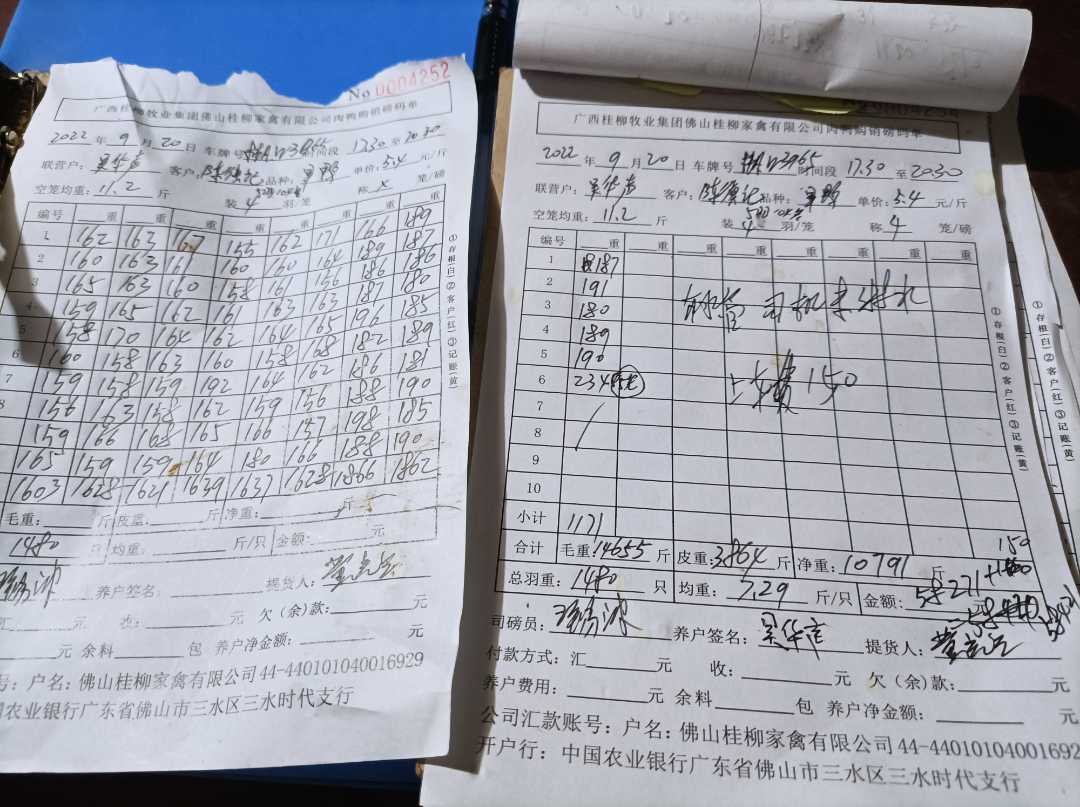 No 0004252
广西桂柳牧业集团佛山桂柳家禽有限公司肉鸭购销磅码单
2022 年 9 月 20 日 车牌号 时间段 17.30 至 20.30
联营户: 客户: 品种: 单价: 5.4 元/斤
空笼均重: 11.2 斤 装 4 羽/笼 称 笼/磅
编号 重 重 重 重 重 重 重 重
1 162 163 167 155 162 171 166 189
2 160 163 161 160 160 164 189 187
3 165 163 160 158 161 156 186 186
4 159 165 162 161 163 163 187 180
5 158 170 164 162 164 165 196 185
6 160 158 163 160 158 168 182 189
7 159 158 159 192 164 162 186 181
8 156 163 158 162 159 156 188 190
159 166 168 165 166 157 198 185
165 159 159 164 180 166 188 190
1603 1628 1621 1639 1637 1628 1866 1862
毛重: 斤 皮重: 斤 净重: 斤
1480 只 均重: 斤/只 金额: 元
养户签名: 提货人:
汇 元 收: 元 欠(余)款: 元
元 余料 包 养户净金额: 元
号: 户名: 佛山桂柳家禽有限公司 44-440101040016929
国农业银行广东省佛山市三水区三水时代支行
①存根(白)②客户(红)③记账(黄)
广西桂柳牧业集团佛山桂柳家禽有限公司肉鸭购销磅码单
2022 年 9 月 20 日 车牌号 时间段 17.30 至 20.30
联营户: 吴华声 客户: 品种: 单价: 5.4 元/斤
空笼均重: 11.2 斤 装 4 羽/笼 称 4 笼/磅
编号 重 重 重 重 重 重 重 重
1 187
2 191
3 180
4 189
5 190
6 234
7
8
9
10
司机
费 150
小计 1171
150
合计 毛重: 14655 斤 皮重: 3864 斤 净重: 10791 斤
总羽重: 1480 只 均重: 7.29 斤/只 金额: 58271
司磅员: 养户签名: 吴华声 提货人:
付款方式: 汇 元 收: 元 欠(余)款: 元
养户费用: 元 余料 包 养户净金额: 元
公司汇款账号: 户名: 佛山桂柳家禽有限公司 44-44010104001692
开户行: 中国农业银行广东省佛山市三水区三水时代支行
①存根(白)②客户(红)③记账(黄)
①存根(白)②客户(红)③记账(黄)